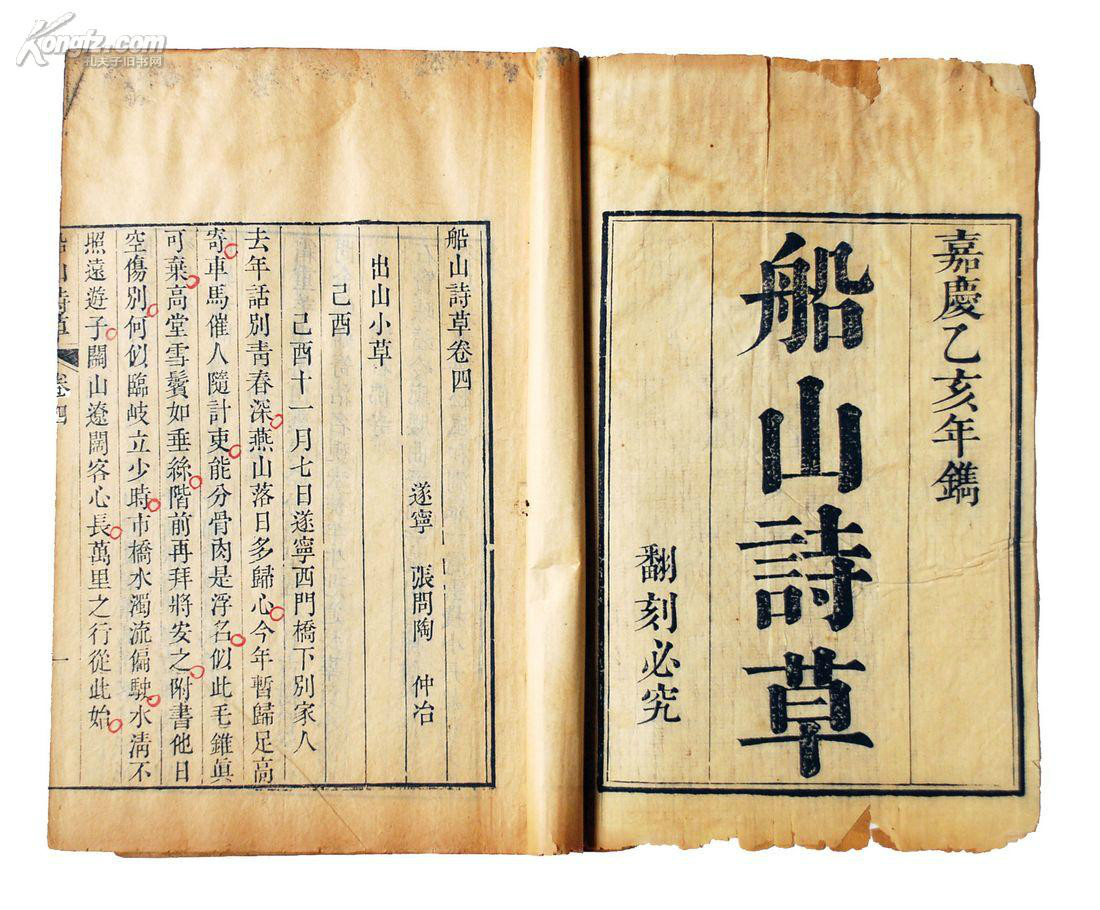 Kongfz.com
孔夫子旧书网
嘉慶乙亥年鐫
船山詩草
翻刻必究
船山詩草卷四
遂寧 張問陶 仲冶
出山小草
己酉
己酉十一月七日遂寧西門橋下別家人
去年話別青春深燕山落日多歸心今年暫歸足高
寄車馬催人隨計吏能分骨肉是浮名似此毛錐眞
可棄高堂雪鬢如垂絲階前再拜將安之附書他日
空傷別何似臨岐立少時市橋水濁流偏駛水清不
照遠遊子關山遼闊客心長萬里之行從此始
船山詩草
卷四
一